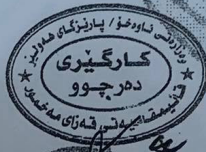 وەزارەتی ناوخۆ / پارێزگای هەولێر
کارگێڕی
دەرچوو
قائیمقامیەتی قەزای مەخمور